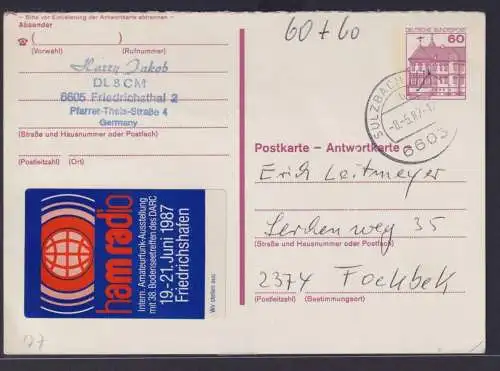 – Bitte vor Einlieferung der Antwortkarte abtrennen –
Absender
60 + 60
DEUTSCHE BUNDESPOST
60
☎ ( )
(Vorwahl) (Rufnummer)
Harry Jakob
DL 8 CM
6605 Friedrichsthal 2
Pfarrer-Theis-Straße 4
Germany
(Straße und Hausnummer oder Postfach)
(Postleitzahl) (Ort)
SULZBACH
-8.-5.87.-
6603
Postkarte – Antwortkarte
Erich Leitmeyer
Lerchenweg 35
(Straße und Hausnummer oder Postfach)
2374 Fockbek
(Postleitzahl) (Bestimmungsort)
ham radio
Intern. Amateurfunk-Ausstellung
mit 38. Bodenseetreffen des DARC
19.-21. Juni 1987
Friedrichshafen
Wir stellen aus: